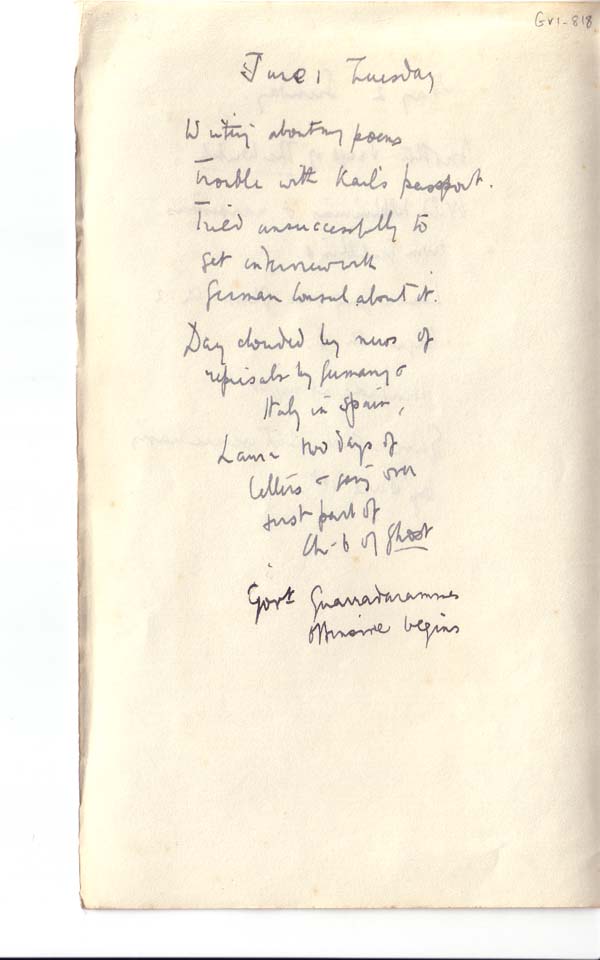 GV1-818
June 1 Tuesday
Writing about my poems
Trouble with Karl's passport.
Tried unsuccessfully to
get interview with
German Consul about it.
Day clouded by news of
reprisals by Germany &
Italy in Spain,
Laura two days of
letters & going over
first part of
Ch-6 of Ghost
Govt Guarradarammes
offensive begins